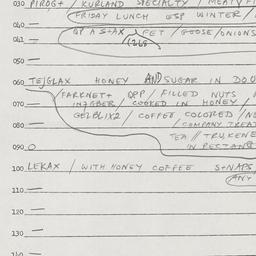 030 PIROGT / KURLAND SPECIALTY / MEAT /
FRIDAY LUNCH ESP WINTER /
040
041 / FET / GOOSE / ONIONS
(268
050
060 TEJGLAX HONEY AND SUGAR IN DOU
FARKNET+ OPP / FILLED NUTS
070 INJGBER / COOKED IN HONEY /
080 GELBLIX2 / COFFEE COLORED /
/ COMPANY TREAT
TEA //
090 IN RECTANG
100 LEKAX / WITH HONEY COFFEE S+NAPS
110 ANY
120
130
140